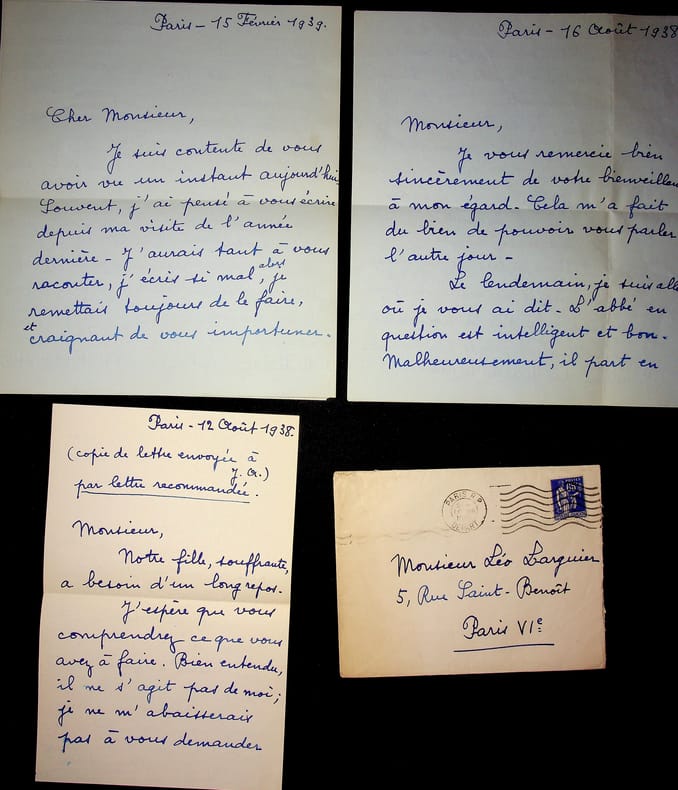 Paris - 15 Février 1939.
Cher Monsieur,
Je suis contente de vous
avoir vu un instant aujourd'hui
Souvent, j'ai pensé à vous écrire
depuis ma visite de l'année
dernière - J'aurais tant à vous
raconter, j'écris si mal, alors je
remettais toujours de le faire,
et craignant de vous importuner.
Paris - 16 Août 1938
Monsieur,
Je vous remercie bien
sincèrement de votre bienveillan
à mon égard. Cela m'a fait
du bien de pouvoir vous parler
l'autre jour -
Le lendemain, je suis allé
où je vous ai dit. L'abbé en
question est intelligent et bon.
Malheureusement, il part en
Paris - 12 Août 1938.
(copie de lettre envoyée à
J. A.)
par lettre recommandée.
Monsieur,
Notre fille, souffrante,
a besoin d'un long repos.
J'espère que vous
comprendrez ce que vous
avez à faire. Bien entendu,
il ne s'agit pas de moi;
je ne m'abaisserais
pas à vous demander
PARIS R.P.
DÉPART
POSTES
Monsieur Léo Larguier
5, Rue Saint-Benoît
Paris VIe